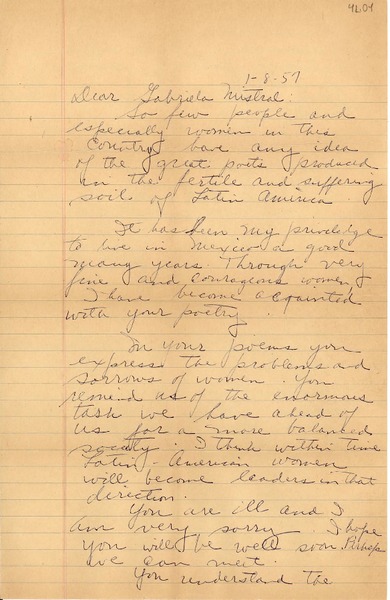 4L04
1-8-57
Dear Gabriela Mistral:
So few people and
especially women in this
country have any idea
of the great poets produced
in the fertile and suffering
soil of Latin America
It has been my priviledge
to live in Mexico a good
many years. Through very
fine and courageous women
I have become acquainted
with your poetry.
In your poems you
express the problems and
sorrows of women. You
remind us of the enormous
task we have ahead of
us for a more balanced
society. I think within time
Latin-American women
will become leaders in that
direction.
You are ill and I
am very sorry. I hope
you will be well soon. Perhaps
we can meet.
You understand the